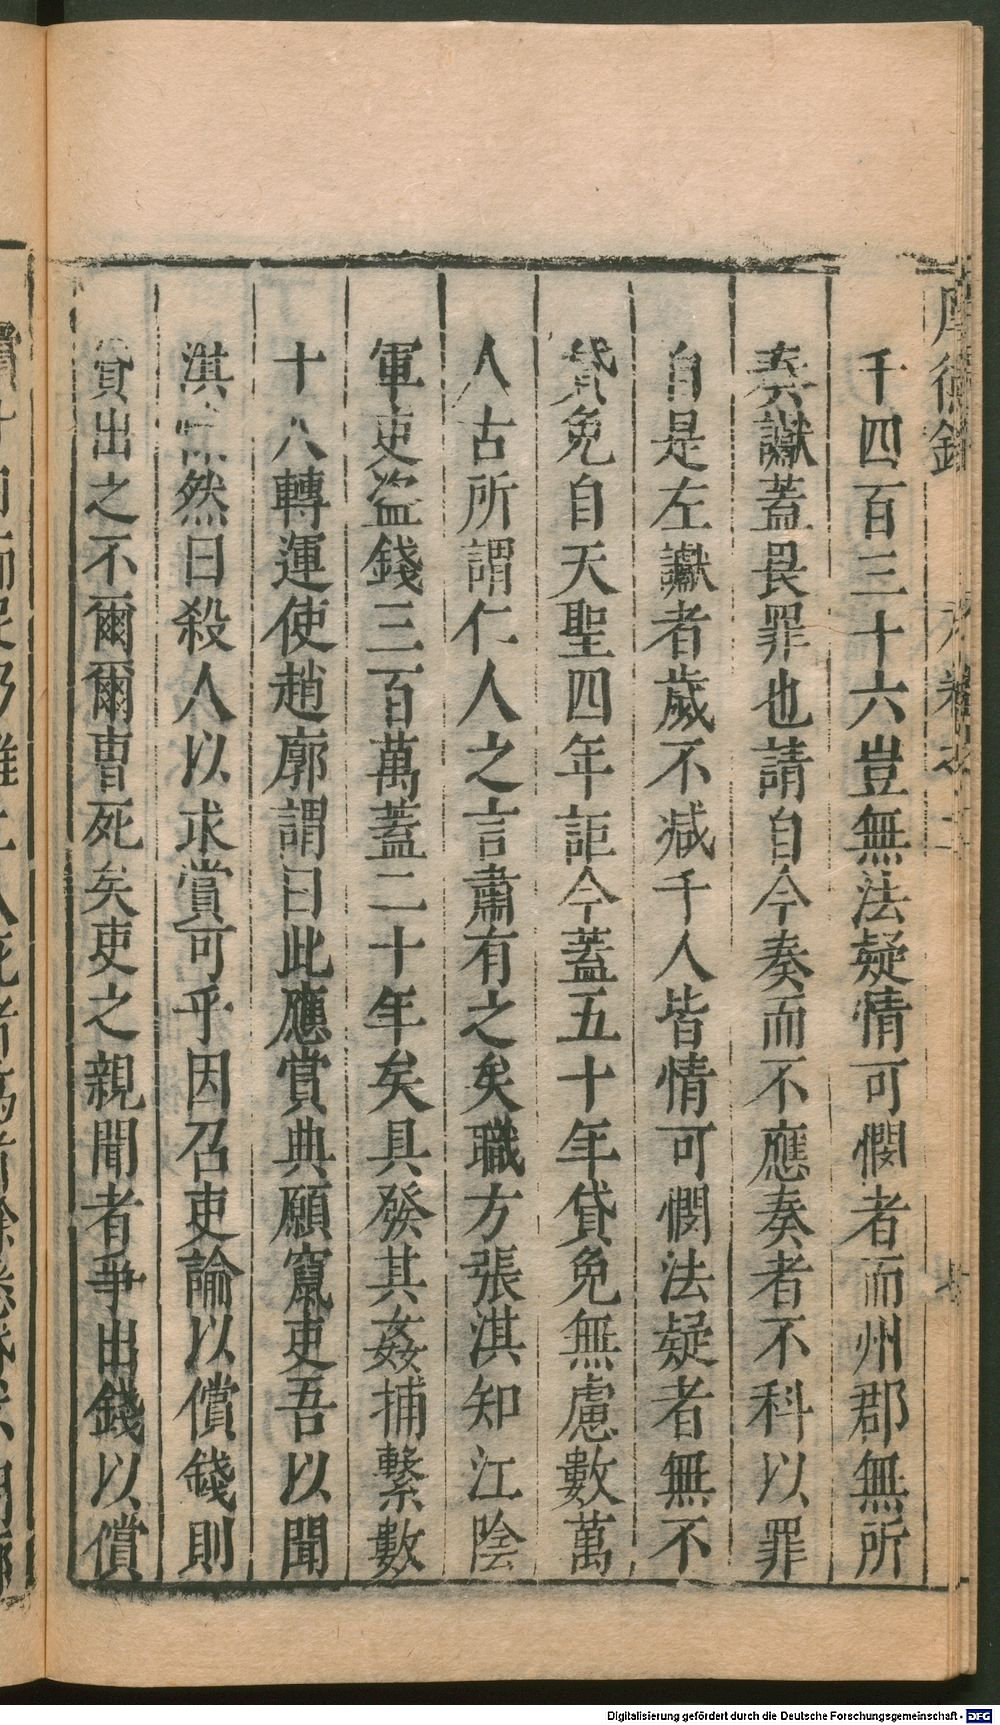 千四百三十六豈無法疑情可憫者而州郡無所
奏讞蓋畏罪也請自今奏而不應奏者不科以罪
自是左讞者歲不减千人皆情可憫法疑者無不
貸免自天聖四年詎今蓋五十年貸免無慮數萬
人古所謂仁人之言肅有之矣職方張淇知江陰
軍吏盜錢三百萬蓋二十年矣具發其姦捕繫數
十八轉運使趙廓謂曰此應賞典願竄吏吾以聞
淇 然曰殺人以求賞可乎因召吏論以償錢則
貸出之不爾爾曹死矣吏之親聞者爭出錢以償
Digitalisierung gefördert durch die Deutsche Forschungsgemeinschaft - DFG